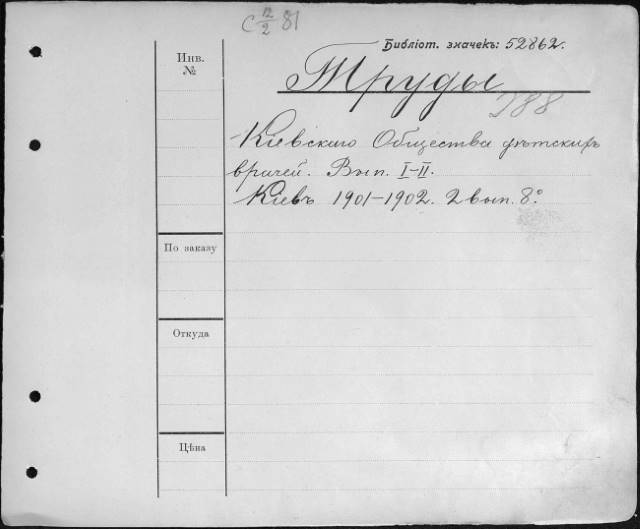 С 12/2 81
Библіот. значекъ: 52862.
Инв.
№
Труды
Т88
Кіевскаго Общества дѣтскихъ
врачей. Вып. I-II.
Кіевъ 1901-1902. 2 вып. 8°
По заказу
Откуда
Цѣна